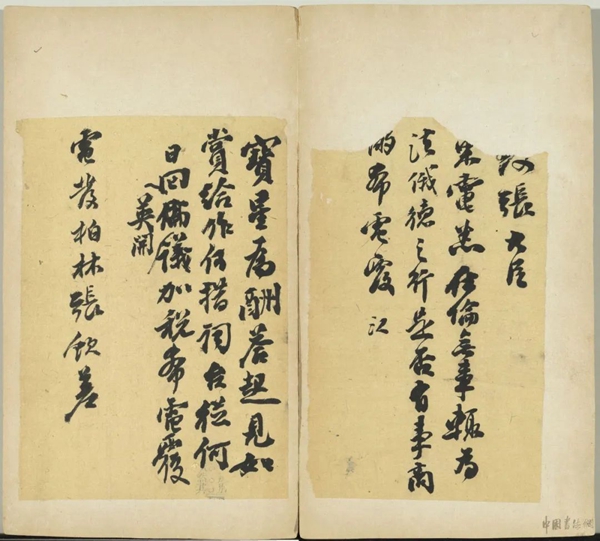 張大臣
來電悉在倫無事輒為
法俄德之行是否有事商
酌希電覆 江
寶星為酬答起見如
賞給作何措詞台從何
日回倫議加稅希電覆
英開
電發柏林張欽差
中國書法網